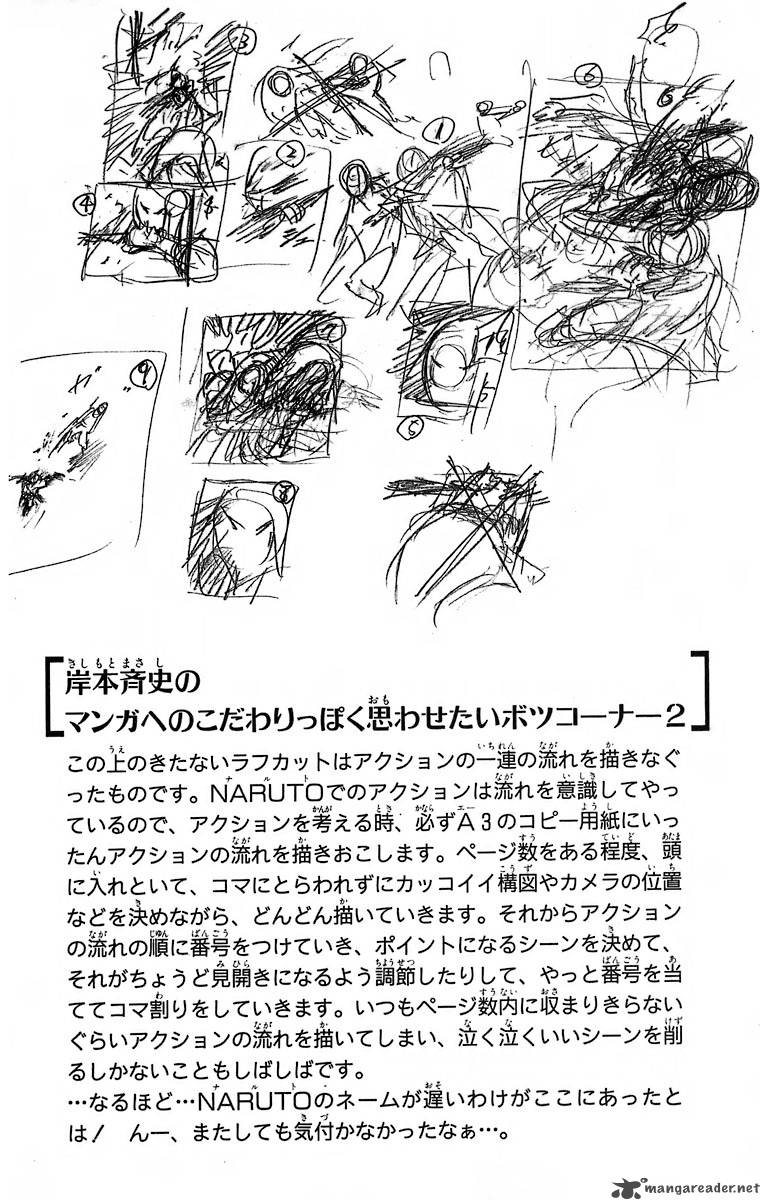 3
6
1
2
4
7
9
ガ
5
8
岸本斉史の
マンガへのこだわりっぽく思わせたいボツコーナー2
この上のきたないラフカットはアクションの一連の流れを描きなぐ
ったものです。NARUTOでのアクションは流れを意識してやっ
ているので、アクションを考える時、必ずA3のコピー用紙にいっ
たんアクションの流れを描きおこします。ページ数をある程度、頭
に入れといて、コマにとらわれずにカッコイイ構図やカメラの位置
などを決めながら、どんどん描いていきます。それからアクション
の流れの順に番号をつけていき、ポイントになるシーンを決めて、
それがちょうど見開きになるよう調節したりして、やっと番号を当
ててコマ割りをしていきます。いつもページ数内に収まりきらない
ぐらいアクションの流れを描いてしまい、泣く泣くいいシーンを削
るしかないこともしばしばです。
…なるほど…NARUTOのネームが遅いわけがここにあったと
は! んー、またしても気付かなかったなぁ…。
mangareader.net